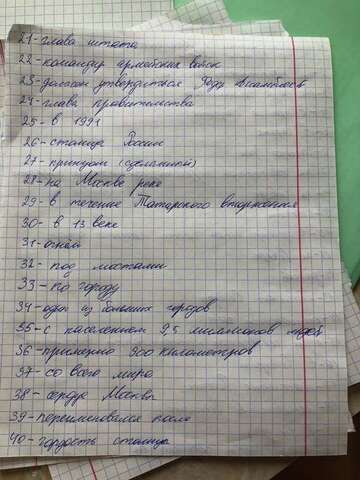 21-глава штата
22-командир армейских войск
23-должен утвердиться Федр
24-глава правительства
25-в 1991
26-столица России
27-принцом (сделанный)
28-на Москве реке
29-в течение Татарского вторжения
30-в 13 веке
31-огнём
32-под мостами
33-по городу
34-один из больших городов
35-с населением 9,5 миллионов людей
36-примерно 900 километров
37-со всего мира
38-сердце Москвы
39-переименовался после
40-гордость столицы